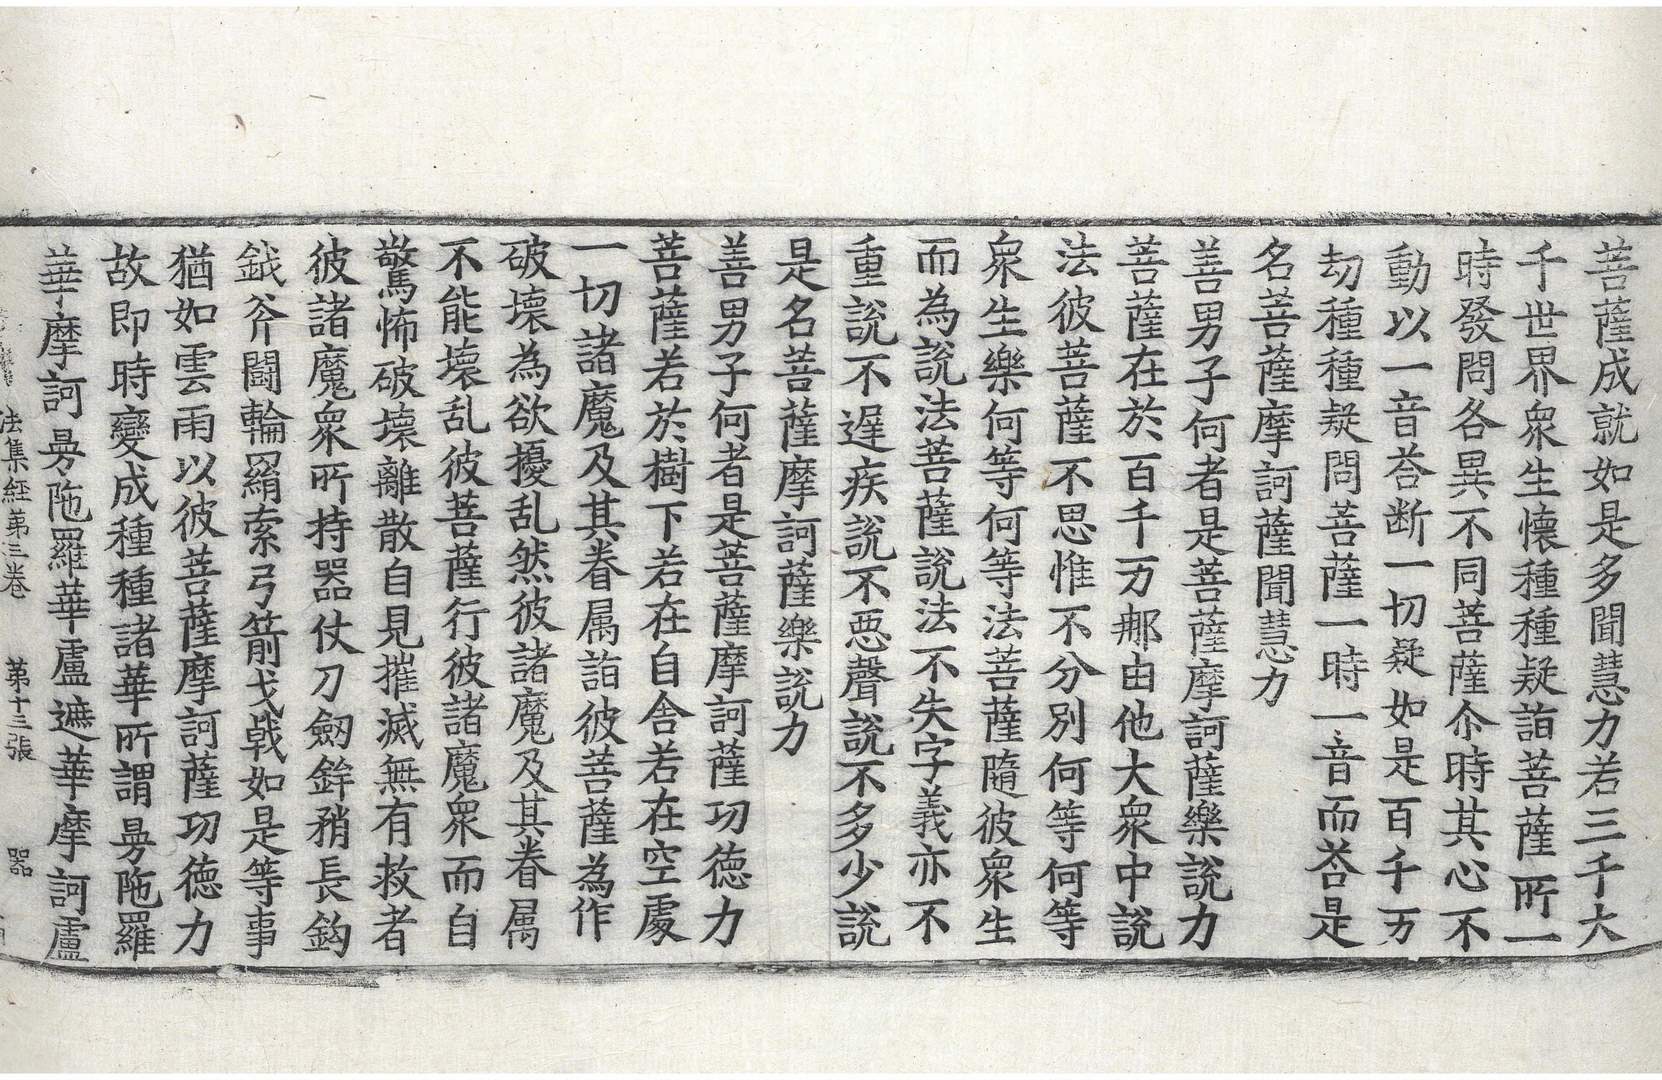 菩薩成就如是多聞慧力若三千大
千世界衆生懷種種疑詣菩薩所一
時發問各異不同菩薩尒時其心不
動以一音荅断一切疑如是百千万
劫種種疑問菩薩一時一音而荅是
名菩薩摩訶薩聞慧力
善男子何者是菩薩摩訶薩樂說力
菩薩在於百千万那由他大衆中說
法彼菩薩不思惟不分別何等何等
衆生樂何等何等法菩薩隨彼衆生
而為說法菩薩說法不失字義亦不
重說不遲疾說不惡聲說不多少說
是名菩薩摩訶薩樂說力
善男子何者是菩薩摩訶薩功德力
菩薩若於樹下若在自舍若在空處
一切諸魔及其眷属詣彼菩薩為作
破壞為欲擾乱然彼諸魔及其眷属
不能壞乱彼菩薩行彼諸魔衆而自
驚怖破壞離散自見摧滅無有救者
彼諸魔衆所持器仗刀劔鉾矟長鈎
鉞斧鬪輪羂索弓箭戈戟如是等事
猶如雲雨以彼菩薩摩訶薩功德力
故即時變成種種諸華所謂㝵陁羅
華摩訶㝵陁羅華盧遮華摩訶盧
法集經第三卷 第十三張 器